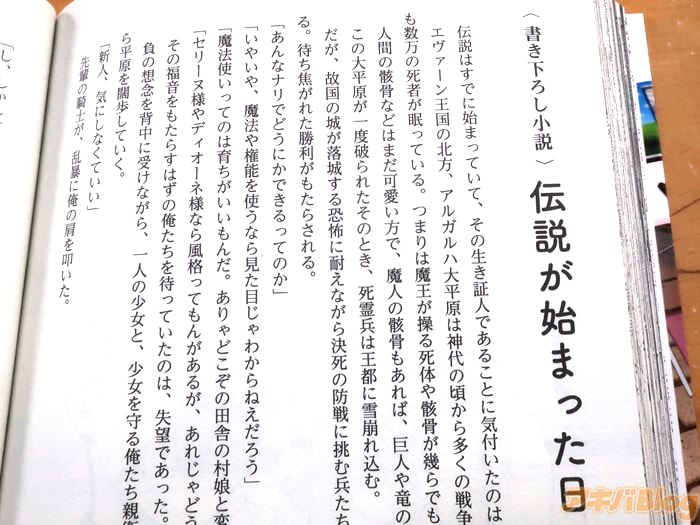 〈書き下ろし小説〉伝説が始まった日
伝説はすでに始まっていて、その生き証人であることに気付いたのは
エヴァーン王国の北方、アルガルハ大平原は神代の頃から多くの戦争
も数万の死者が眠っている。つまりは魔王が操る死体や骸骨が幾らでも
人間の骸骨などはまだ可愛い方で、魔人の骸骨もあれば、巨人や竜の
この大平原が一度破られたそのとき、死霊兵は王都に雪崩れ込む。
だが、故国の城が落城する恐怖に耐えながら決死の防戦に挑む兵たち
る。待ち焦がれた勝利がもたらされる。
「あんなナリでどうにかできるってのか」
「いやいや、魔法や権能を使うなら見た目じゃわからねえだろう」
「魔法使いってのは育ちがいいもんだ。ありゃどこぞの田舎の村娘と変
「セリーヌ様やディオーネ様なら風格ってもんがあるが、あれじゃどう
その福音をもたらすはずの俺たちを待っていたのは、失望であった。
負の想念を背中に受けながら、一人の少女と、少女を守る俺たち親衛
ら平原を闊歩していく。
「新人、気にしなくていい」
先輩の騎士が、乱暴に俺の肩を叩いた。
アキバBlog